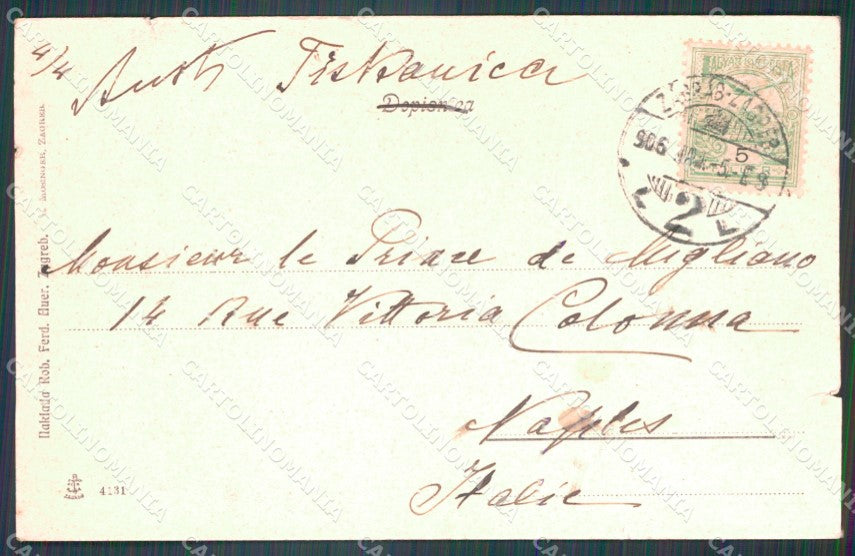 4/4
Tiskanica
Dopisnica
ZÁGRÁB-ZAGREB
906 5
2
Monsieur le Prince de Migliano
14 Rue Vittoria Colonna
Naples
Italie
Naklada Rob. Ferd. Auer. Zagreb.
4131
CARTOLINOMANIA